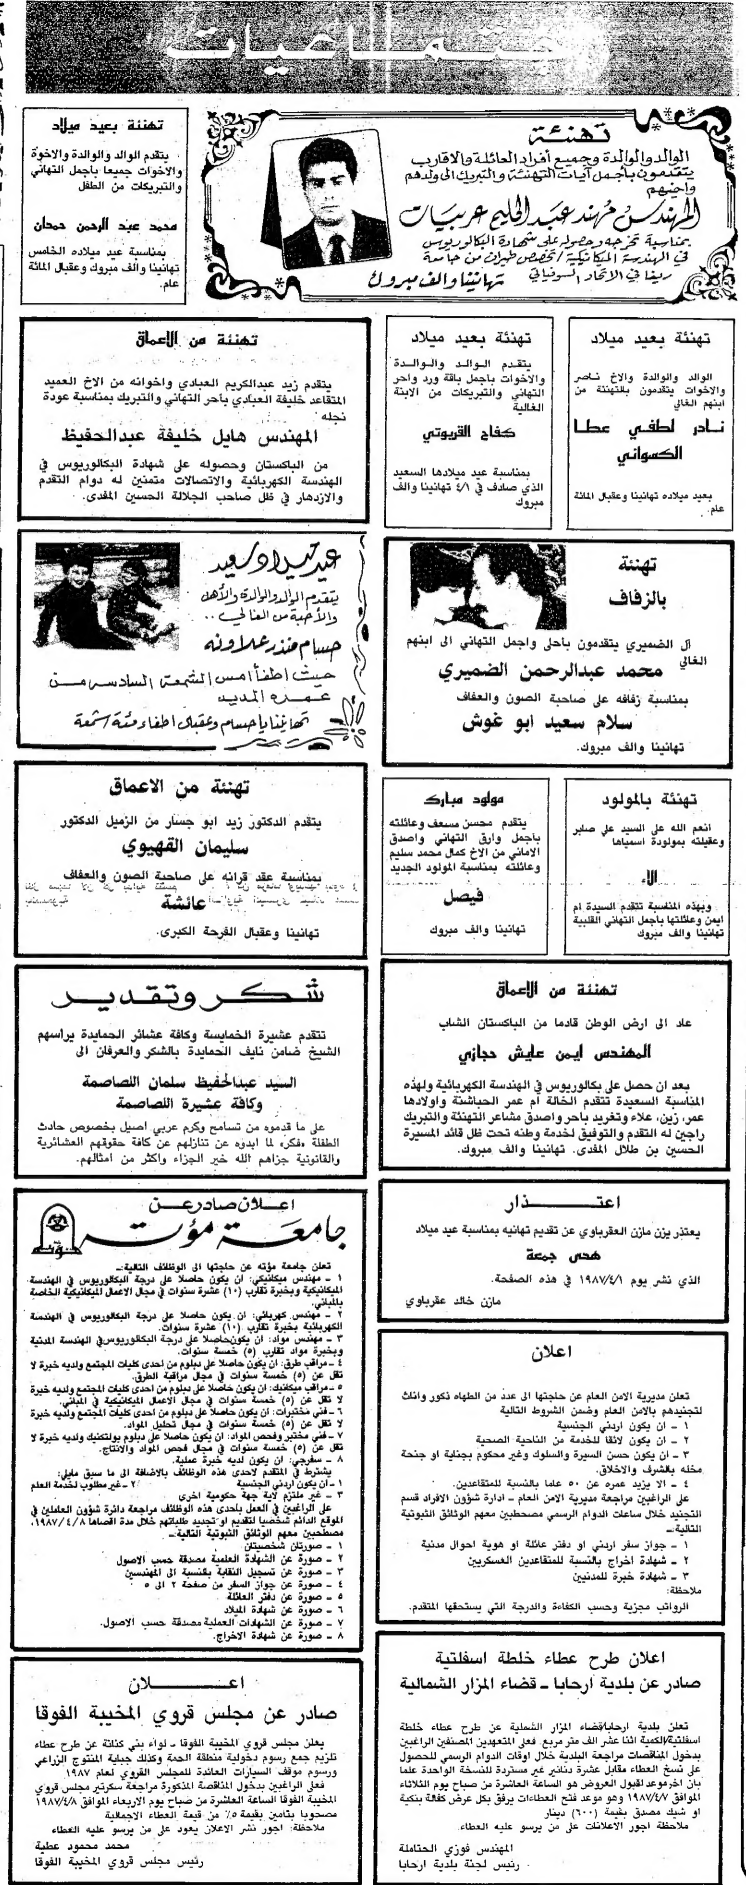 اجتماعيات
تهنئة
الوالد والوالدة وجميع أفراد العائلة والاقارب
يتقدمون بأجمل آيات التهنئة والتبريك الى ولدهم
وأخيهم
المهندس مهند عبد الحليم عربيات
بمناسبة تخرجه وحصوله على شهادة البكالوريوس
في الهندسة الميكانيكية / تخصص طيران من جامعة
ريغا في الاتحاد السوفياتي
تهانينا والف مبروك
تهنئة بعيد ميلاد
يتقدم الوالد والوالدة والاخوة
والاخوات جميعا باجمل التهاني
والتبريكات من الطفل
محمد عبد الرحمن حمدان
بمناسبة عيد ميلاده الخامس
تهانينا والف مبروك وعقبال المائة
عام.
تهنئة بعيد ميلاد
الوالد والوالدة والاخ ناصر
والاخوات يتقدمون بالتهنئة من
ابنهم الغالي
نادر لطفي عطا
الكسواني
بعيد ميلاده تهانينا وعقبال المائة
عام.
تهنئة بعيد ميلاد
يتقدم الوالد والوالدة
والاخوات باجمل باقة ورد واحر
التهاني والتبريكات من الابنة
الغالية
كفاح القريوتي
بمناسبة عيد ميلادها السعيد
الذي صادف في ٤/١ تهانينا والف
مبروك
تهنئة من الاعماق
يتقدم زيد عبدالكريم العبادي واخوانه من الاخ العميد
المتقاعد خليفة العبادي بأحر التهاني والتبريك بمناسبة عودة
نجله
المهندس هايل خليفة عبدالحفيظ
من الباكستان وحصوله على شهادة البكالوريوس في
الهندسة الكهربائية والاتصالات متمنين له دوام التقدم
والازدهار في ظل صاحب الجلالة الحسين المفدى.
تهنئة
بالزفاف
آل الضميري يتقدمون باحلى واجمل التهاني الى ابنهم
الغالي
محمد عبدالرحمن الضميري
بمناسبة زفافه على صاحبة الصون والعفاف
سلام سعيد ابو غوش
تهانينا والف مبروك.
عيد ميلاد سعيد
يتقدم الوالد والوالدة والأهل
والأحبة من الغالي ..
حسام منذر علاونه
حيث اطفأ امس الشمعة السادسه من
عمره المديد
تهانينا يا حسام وعقبال اطفاء مئة شمعة
تهنئة بالمولود
انعم الله على السيد علي صابر
وعقيلته بمولودة اسمياها
الاء
وبهذه المناسبة تتقدم السيدة ام
ايمن وعائلتها باجمل التهاني القلبية
تهانينا والف مبروك
مولود مبارك
يتقدم محسن مسعف وعائلته
باجمل وارق التهاني واصدق
الاماني من الاخ كمال محمد سليم
وعائلته بمناسبة المولود الجديد
فيصل
تهانينا والف مبروك
تهنئة من الاعماق
يتقدم الدكتور زيد ابو جسار من الزميل الدكتور
سليمان القهيوي
بمناسبة عقد قرانه على صاحبة الصون والعفاف
عائشة
تهانينا وعقبال الفرحة الكبرى.
تهنئة من الاعماق
عاد الى ارض الوطن قادما من الباكستان الشاب
المهندس ايمن عايش حجازي
بعد ان حصل على بكالوريوس في الهندسة الكهربائية ولهذه
المناسبة السعيدة تتقدم الخالة ام عمر الحياشنة واولادها
عمر، زين، علاء وتغريد باحر واصدق مشاعر التهنئة والتبريك
راجين له التقدم والتوفيق لخدمة وطنه تحت ظل قائد المسيرة
الحسين بن طلال المفدى. تهانينا والف مبروك.
شكر وتقدير
تتقدم عشيرة الخمايسة وكافة عشائر الحمايدة يراسهم
الشيخ ضامن نايف الحمايدة بالشكر والعرفان الى
السيد عبدالحفيظ سلمان اللصاصمة
وكافة عشيرة اللصاصمة
على ما قدموه من تسامح وكرم عربي اصيل بخصوص حادث
الطفلة «فكر» لما ابدوه عن تنازلهم عن كافة حقوقهم العشائرية
والقانونية جزاهم الله خير الجزاء واكثر من امثالهم.
اعتذار
يعتذر يزن مازن العقرباوي عن تقديم تهانيه بمناسبة عيد ميلاد
هدى جمعة
الذي نشر يوم ١٩٨٧/٤/١ في هذه الصفحة.
مازن خالد عقرباوي
اعلان صادر عن
جامعة مؤتة
تعلن جامعة مؤته عن حاجتها الى الوظائف التالية:ـ
١ ـ مهندس ميكانيكي: ان يكون حاصلا على درجة البكالوريوس في الهندسة
الميكانيكية وبخبرة تقارب (١٠) عشرة سنوات في مجال الاعمال الميكانيكية الخاصة
بالمباني.
٢ ـ مهندس كهربائي: ان يكون حاصلا على درجة البكالوريوس في الهندسة
الكهربائية بخبرة تقارب (١٠) عشرة سنوات.
٣ ـ مهندس مواد: ان يكون حاصلا على درجة البكالوريوس في الهندسة المدنية
وبخبرة مواد تقارب (٥) خمسة سنوات.
٤ ـ مراقب طرق: ان يكون حاصلا على دبلوم من احدى كليات المجتمع ولديه خبرة لا
تقل عن (٥) خمسة سنوات في مجال مراقبة الطرق.
٥ ـ مراقب ميكانيك: ان يكون حاصلا على دبلوم من احدى كليات المجتمع ولديه خبرة
لا تقل عن (٥) خمسة سنوات في مجال الاعمال الميكانيكية في المباني.
٦ ـ فني مختبرات: ان يكون حاصلا على دبلوم من احدى كليات المجتمع ولديه خبرة
لا تقل عن (٥) خمسة سنوات في مجال تحليل المواد.
٧ ـ فني مختبر وفحص المواد: ان يكون حاصلا على دبلوم بولتكنيك ولديه خبرة لا
تقل عن (٥) خمسة سنوات في مجال فحص المواد والانتاج.
٨ ـ سفرجي: ان يكون لديه خبرة عملية.
يشترط في المتقدم لاحدى هذه الوظائف بالاضافة الى ما سبق مايلي:
١ ـ ان يكون اردني الجنسية ٢ ـ غير مطلوب لخدمة العلم
٣ ـ غير ملتزم لاية جهة حكومية اخرى
على الراغبين في العمل باحدى هذه الوظائف مراجعة دائرة شؤون العاملين في
الموقع الدائم شخصيا لتقديم او تجديد طلباتهم خلال مدة اقصاها ١٩٨٧/٤/٨،
مصطحبين معهم الوثائق الثبوتية التالية:ـ
١ ـ صورتان شخصيتان
٢ ـ صورة عن الشهادة العلمية مصدقة حسب الاصول
٣ ـ صورة عن تسجيل النقابة بالنسبة الى المهندسين
٤ ـ صورة عن جواز السفر من صفحة ٢ الى ٥
٥ ـ صورة عن دفتر العائلة
٦ ـ صورة عن شهادة الميلاد
٧ ـ صورة عن الشهادات العملية مصدقة حسب الاصول.
٨ ـ صورة عن شهادة الاخراج.
اعلان
تعلن مديرية الامن العام عن حاجتها الى عدد من الطهاه ذكور واناث
لتجنيدهم بالامن العام وضمن الشروط التالية
١ ـ ان يكون اردني الجنسية
٢ ـ ان يكون لائقا للخدمة من الناحية الصحية
٣ ـ ان يكون حسن السيرة والسلوك وغير محكوم بجناية او جنحة
مخله بالشرف والاخلاق.
٤ ـ الا يزيد عمره عن ٥٠ عاما بالنسبة للمتقاعدين.
على الراغبين مراجعة مديرية الامن العام ـ ادارة شؤون الافراد قسم
التجنيد خلال ساعات الدوام الرسمي مصطحبين معهم الوثائق الثبوتية
التالية:ـ
١ ـ جواز سفر اردني او دفتر عائلة او هوية احوال مدنية
٢ ـ شهادة اخراج بالنسبة للمتقاعدين العسكريين
٣ ـ شهادة خبرة للمدنيين
ملاحظة:
الرواتب مجزية وحسب الكفاءة والدرجة التي يستحقها المتقدم.
اعلان طرح عطاء خلطة اسفلتية
صادر عن بلدية ارحابا ـ قضاء المزار الشمالية
تعلن بلدية ارحابا/قضاء المزار الشمالية عن طرح عطاء خلطة
اسفلتية/الكمية اثنا عشر الف متر مربع. فعلى المتعهدين المصنفين الراغبين
بدخول المناقصات مراجعة البلدية خلال اوقات الدوام الرسمي للحصول
على نسخ العطاء مقابل عشرة دنانير غير مستردة للنسخة الواحدة علما
بان اخر موعد لقبول العروض هو الساعة العاشرة من صباح يوم الثلاثاء
الموافق ١٩٨٧/٤/٧ وهو موعد فتح العطاءات يرفق بكل عرض كفالة بنكية
او شيك مصدق بقيمة (٦٠٠) دينار
ملاحظة اجور الاعلانات على من يرسو عليه العطاء.
المهندس فوزي الحتاملة
رئيس لجنة بلدية ارحابا
اعــلان
صادر عن مجلس قروي المخيبة الفوقا
يعلن مجلس قروي المخيبة الفوقا ـ لواء بني كنانة عن طرح عطاء
تلزيم جمع رسوم دخولية منطقة الحمة وكذلك جباية المنتوج الزراعي
ورسوم موقف السيارات العائدة للمجلس القروي لعام ١٩٨٧
فعلى الراغبين بدخول المناقصة المذكورة مراجعة سكرتير مجلس قروي
المخيبة الفوقا الساعة العاشرة من صباح يوم الاربعاء الموافق ١٩٨٧/٤/٨
مصحوبا بتامين بقيمة ٥٪ من قيمة العطاء الاجمالية
ملاحظة: اجور نشر الاعلان يعود على من يرسو عليه العطاء
محمد محمود عطية
رئيس مجلس قروي المخيبة الفوقا